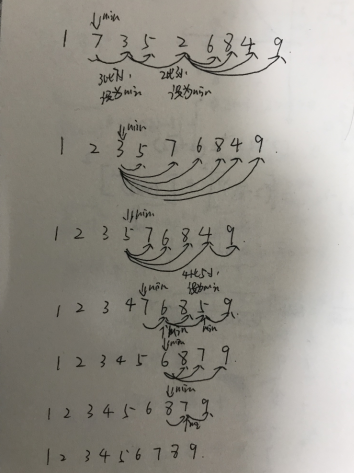 min
1 7 3 5 2 6 8 4 9
3比7小, 2比3小,
设为min 设为min
min
1 2 3 5 7 6 8 4 9
min
1 2 3 5 7 6 8 4 9
4比5小,
min 设为min
1 2 3 4 7 6 8 5 9
min min
min
1 2 3 4 5 6 8 7 9
min
1 2 3 4 5 6 8 7 9
min
1 2 3 4 5 6 7 8 9